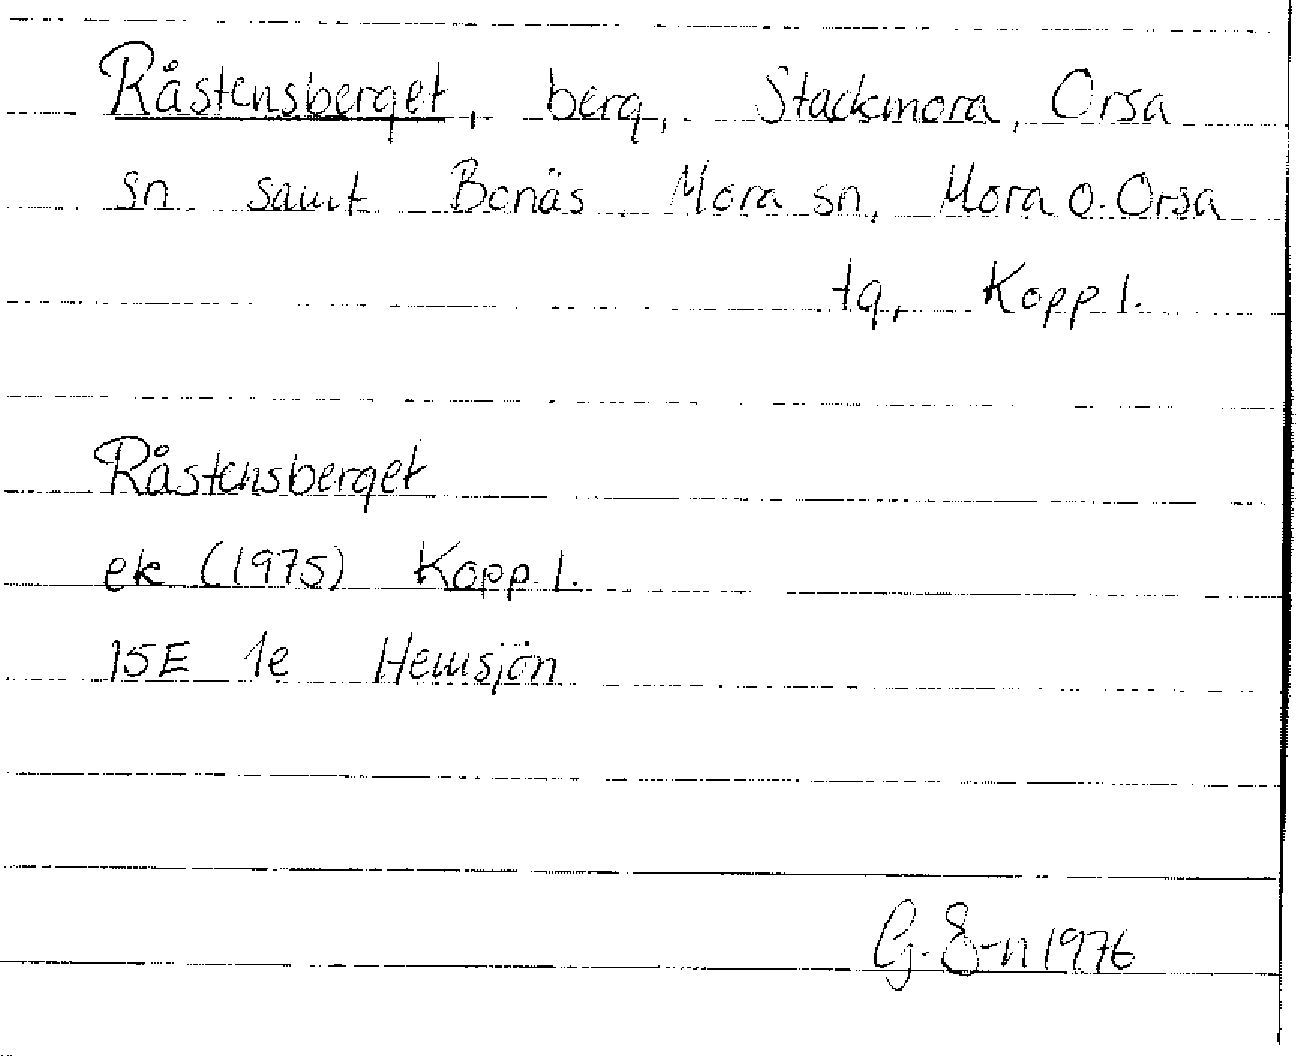 Råstensberget, berg, Stackmora, Orsa
sn samt Bonäs Mora sn, Mora o. Orsa
tg, Kopp l.
Råstensberget
ek (1975) Kopp. l.
15E 1e Hemsjön
G. S-n 1976